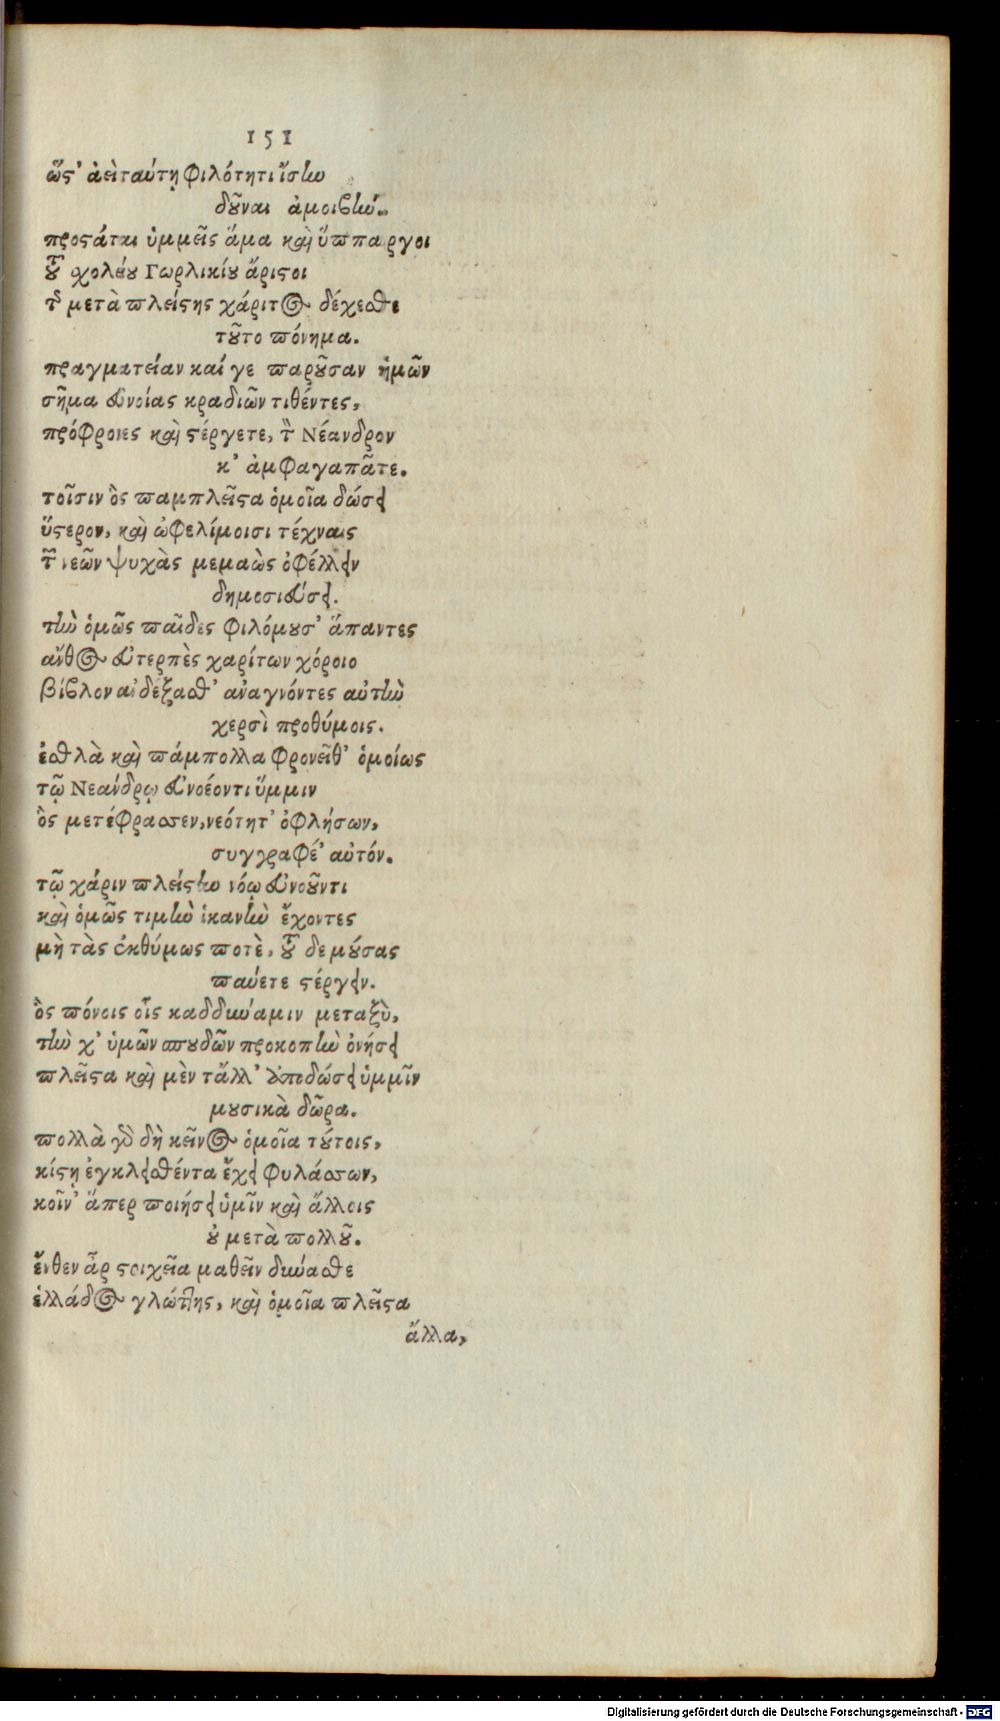 151
ὥστ' ἀεὶ ταύτῃ φιλότητι ἴσην
δοῦναι ἀμοιβήν.
προστάται ὑμμεῖς ἅμα καὶ ὕπαρχοι
τοῦ σχολείου Γωρλικίου ἄριστοι
τοῦ μετὰ πλείστης χάριτος δέχεσθε
τοῦτο πόνημα.
πραγματείαν καί γε παροῦσαν ἡμῶν
σῆμα εὐνοίας κραδιῶν τιθέντες,
πρόφρονες καὶ στέργετε, τὸν Νέανδρον
κ' ἀμφαγαπᾶτε.
τοῖσιν ὃς παμπλεῖστα ὁμοῖα δώσει
ὕστερον, καὶ ὠφελίμοισι τέχναις
τῶν νεῶν ψυχὰς μεμαὼς ὀφέλλειν
δημοσιεύσει.
τὴν ὁμῶς παῖδες φιλόμουσ' ἅπαντες
ἄνθος εὐτερπὲς χαρίτων χόροιο
βίβλον αἰ δέξασθ' ἀναγνόντες αὐτὴν
χερσὶ προθύμοις.
ἐσθλὰ καὶ πάμπολλα φρονεῖθ' ὁμοίως
τῷ Νεάνδρῳ εὐνοέοντι ὕμμιν
ὃς μετέφρασσεν, νεότητ' ὀφλήσων,
συγγραφέ' αὐτόν.
τῷ χάριν πλείστην νόῳ εὐνοῦντι
καὶ ὁμῶς τιμὴν ἱκανὴν ἔχοντες
μὴ τὰς ἐκθύμως ποτὲ, τοῦ δε μούσας
παύετε στέργειν.
ὃς πόνοις οἷς καδδύναμιν μεταξὺ,
τὴν χ' ὑμῶν σπουδῶν προκοπὴν ὀνήσει
πλεῖστα καὶ μὲν τἄλλ' ἀποδώσει ὑμμῖν
μουσικὰ δῶρα.
πολλὰ γὰρ δὴ κεῖνος ὁμοῖα τούτοις,
κίστῃ ἐγκλεισθέντα ἔχει φυλάσσων,
κοῖν' ἅπερ ποιήσει ὑμῖν καὶ ἄλλοις
οὐ μετὰ πολλοῦ.
ἔνθεν ἆρ στοιχεῖα μαθεῖν δύνασθε
ἑλλάδος γλώττης, καὶ ὁμοῖα πλεῖστα
ἄλλα,
Digitalisierung gefördert durch die Deutsche Forschungsgemeinschaft - DFG